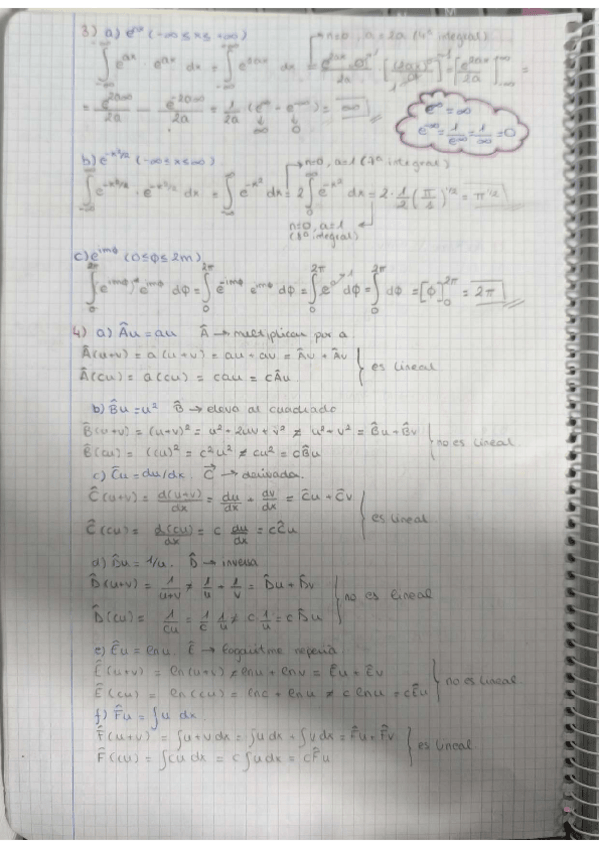 3) a) e^ax (-∞ ≤ x ≤ +∞) n=0, a=2a (4ª integral)
∫_{-∞}^{+∞} e^ax · e^ax dx = ∫_{-∞}^{+∞} e^2ax dx = [e^2ax/2a]_{-∞}^{∞} =
= e^2a∞/2a - e^-2a∞/2a = 1/2a (e^∞ - e^-∞) = ∞
∞ 0
e^∞ = ∞
e^-∞ = 1/e^∞ = 1/∞ = 0
b) e^-x²/2 (-∞ ≤ x ≤ ∞) n=0, a=1 (7ª integral)
∫_{-∞}^{∞} e^-x²/2 · e^-x²/2 dx = ∫_{-∞}^{∞} e^-x² dx = 2 ∫_0^∞ e^-x² dx = 2 · 1/2 (π/1)^1/2 = π^1/2
n=0, a=1
integral)
c) e^imϕ (0 ≤ ϕ ≤ 2m)
∫_0^2π e^imϕ* e^imϕ dϕ = ∫_0^2π e^-imϕ e^imϕ dϕ = ∫_0^2π e^0 dϕ = ∫_0^2π dϕ = [ϕ]_0^2π = 2π
4) a) Âu = au Â → multiplicar por a
Â(u+v) = a(u+v) = au + av = Âu + Âv
Â(cu) = a(cu) = cau = cÂu
es lineal
b) B̂u = u² B̂ → eleva al cuadrado
B̂(u+v) = (u+v)² = u² + 2uv + v² ≠ u² + v² = B̂u + B̂v
B̂(cu) = (cu)² = c²u² ≠ cu² = cB̂u
no es lineal
c) Ĉu = du/dx Ĉ → derivada
Ĉ(u+v) = d(u+v)/dx = du/dx + dv/dx = Ĉu + Ĉv
Ĉ(cu) = d(cu)/dx = c du/dx = cĈu
es lineal
d) D̂u = 1/u. D̂ → inversa
D̂(u+v) = 1/u+v ≠ 1/u + 1/v = D̂u + D̂v
D̂(cu) = 1/cu = 1/c 1/u ≠ c 1/u = cD̂u
no es lineal
e) Êu = lnu. Ê → logaritmo neperia
Ê(u+v) = ln(u+v) ≠ lnu + lnv = Êu + Êv
Ê(cu) = ln(cu) = lnc + lnu ≠ c lnu = cÊu
no es lineal
f) F̂u = ∫u dx
F̂(u+v) = ∫u+v dx = ∫u dx + ∫v dx = F̂u + F̂v
F̂(cu) = ∫cu dx = c∫u dx = cF̂u
es lineal